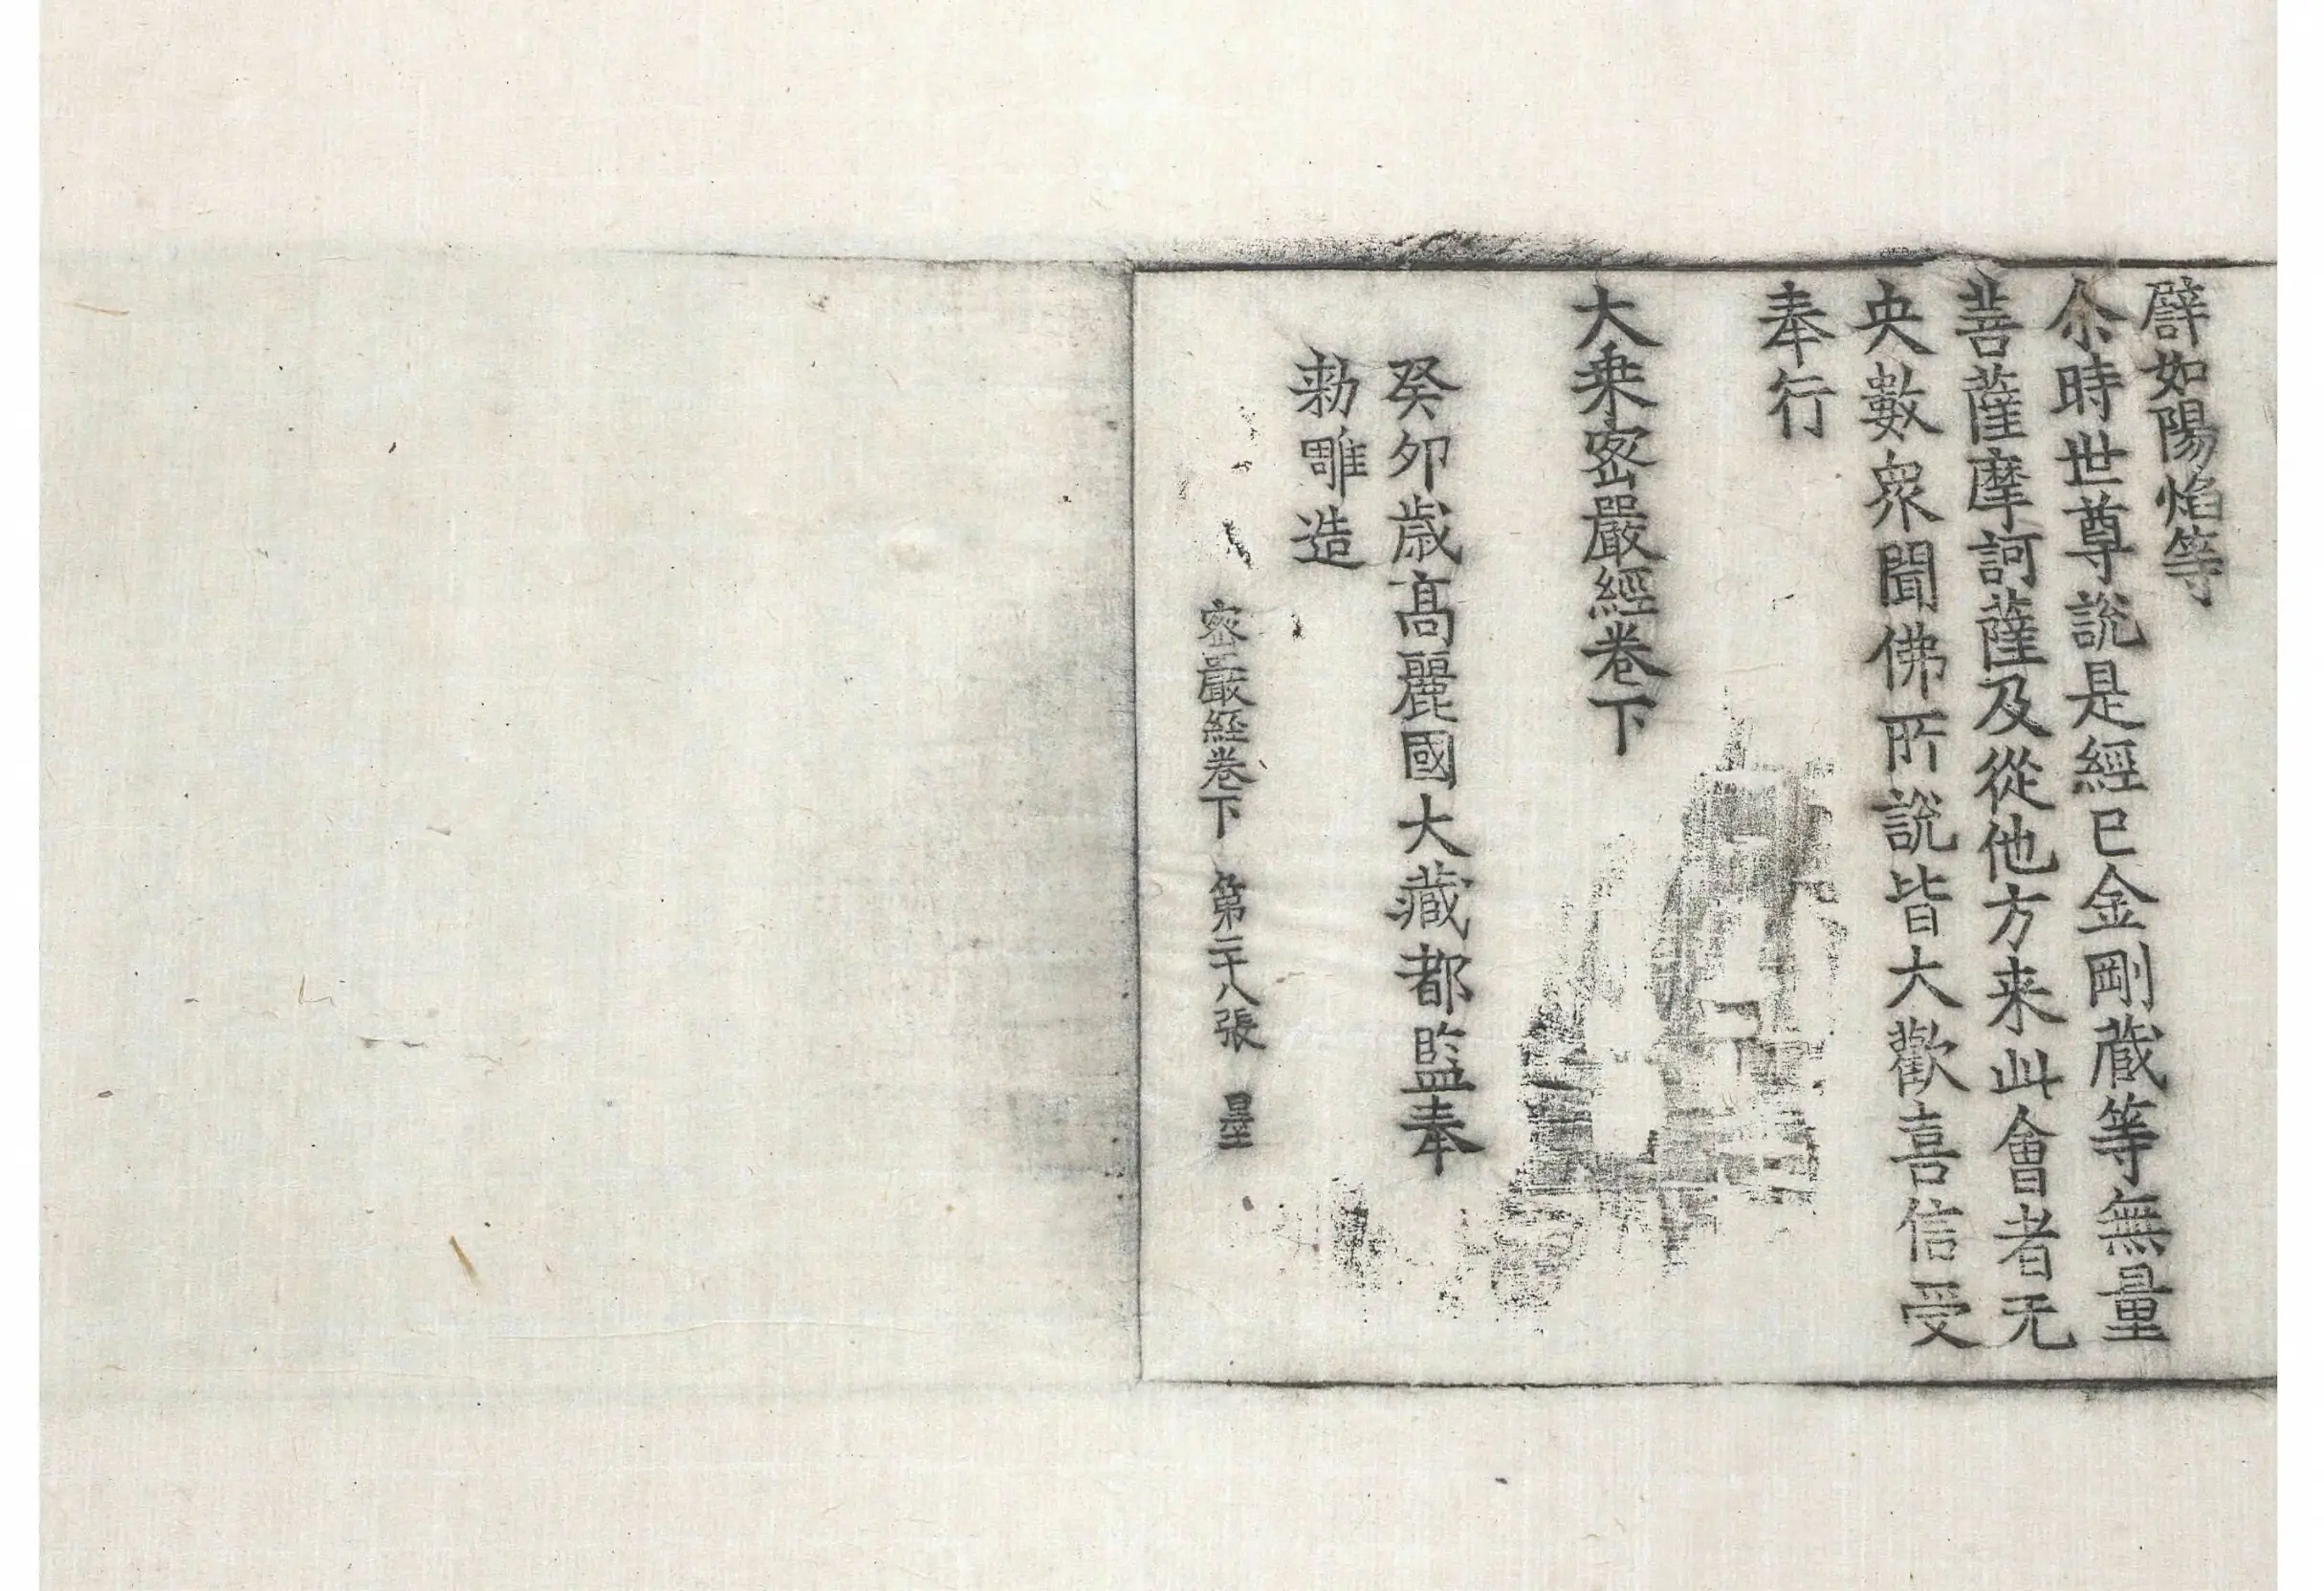 譬如陽焰等
尒時世尊說是經已金剛蔵等無量
菩薩摩訶薩及從他方来此會者无
央數衆聞佛所說皆大歡喜信受
奉行
大乗密嚴經卷下
癸卯歳高麗國大藏都監奉
勅雕造
密嚴經卷下 第二十八張 量